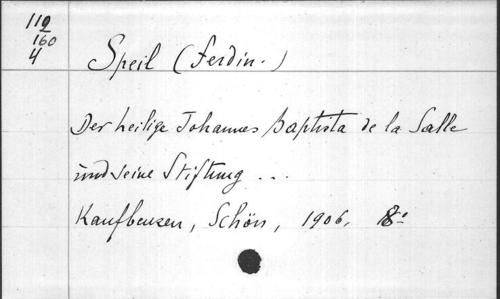 119
160
4
Speil (Ferdin.)
Der heilige Johannes Baptista de la Salle
und seine Stiftung ...
Kaufbeuren, Schön, 1906, 8°